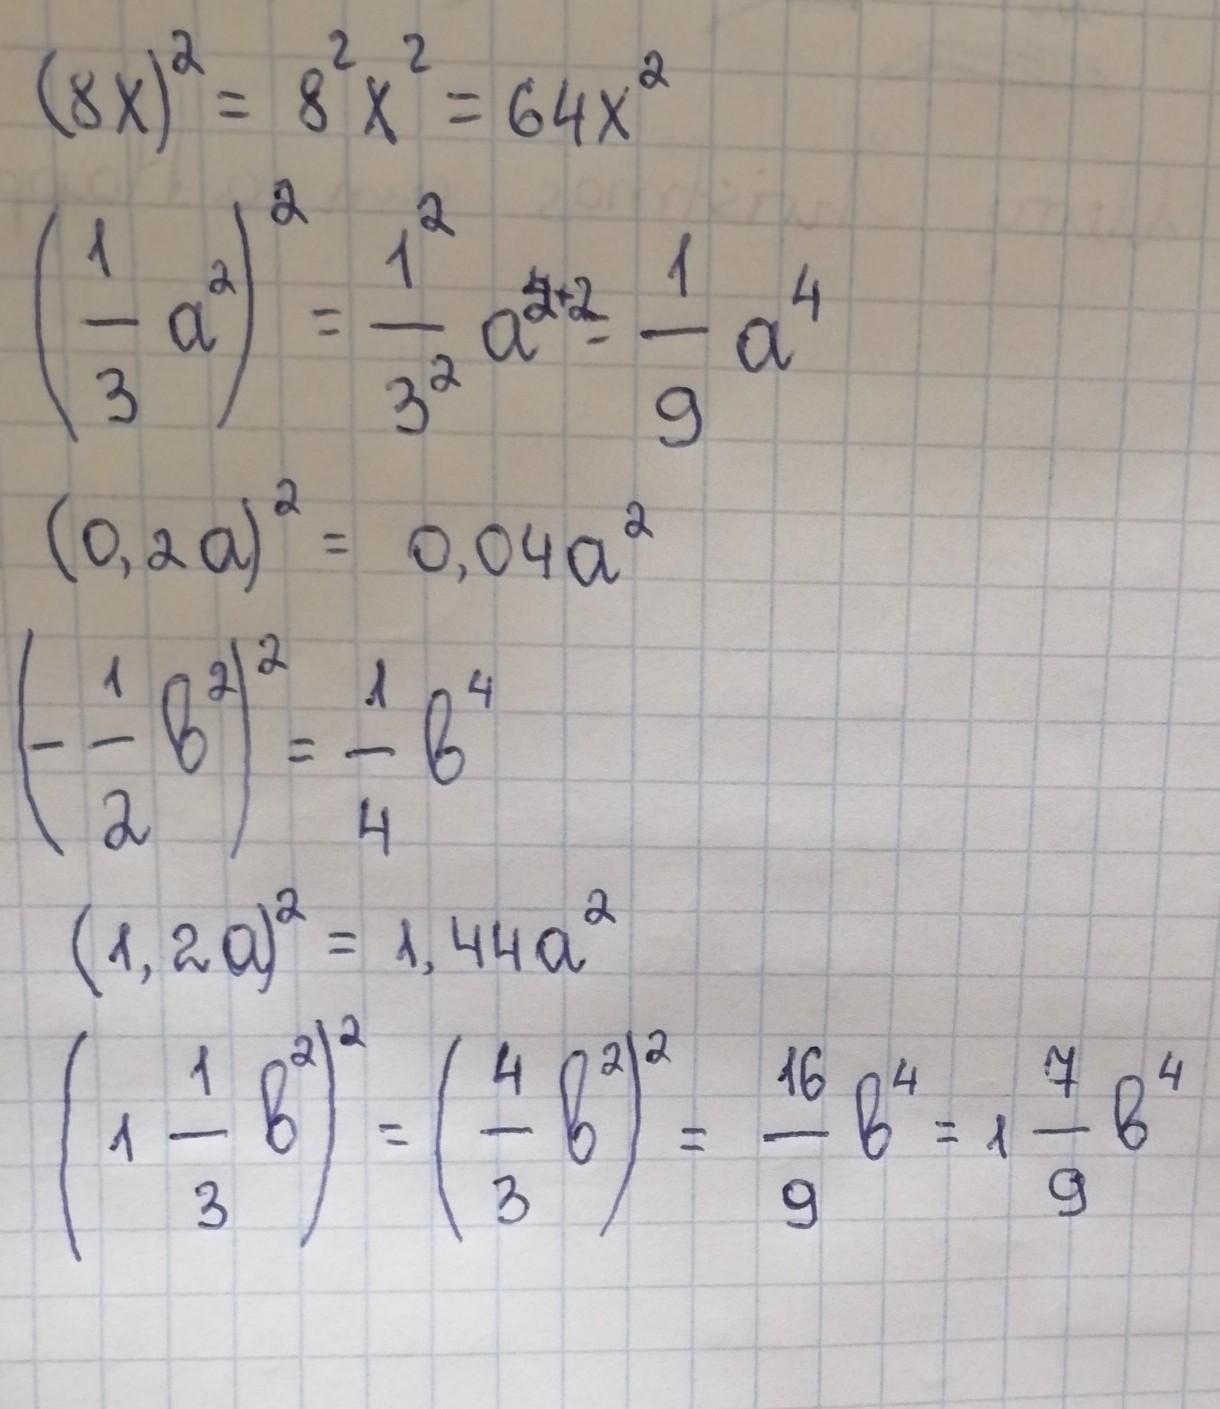 (8x)² = 8²x² = 64x²
(1/3 a²)² = 1²/3² a²⁺² = 1/9 a⁴
(0,2a)² = 0,04a²
(-1/2 в²)² = 1/4 в⁴
(1,2a)² = 1,44a²
(1 1/3 в²)² = (4/3 в²)² = 16/9 в⁴ = 1 7/9 в⁴